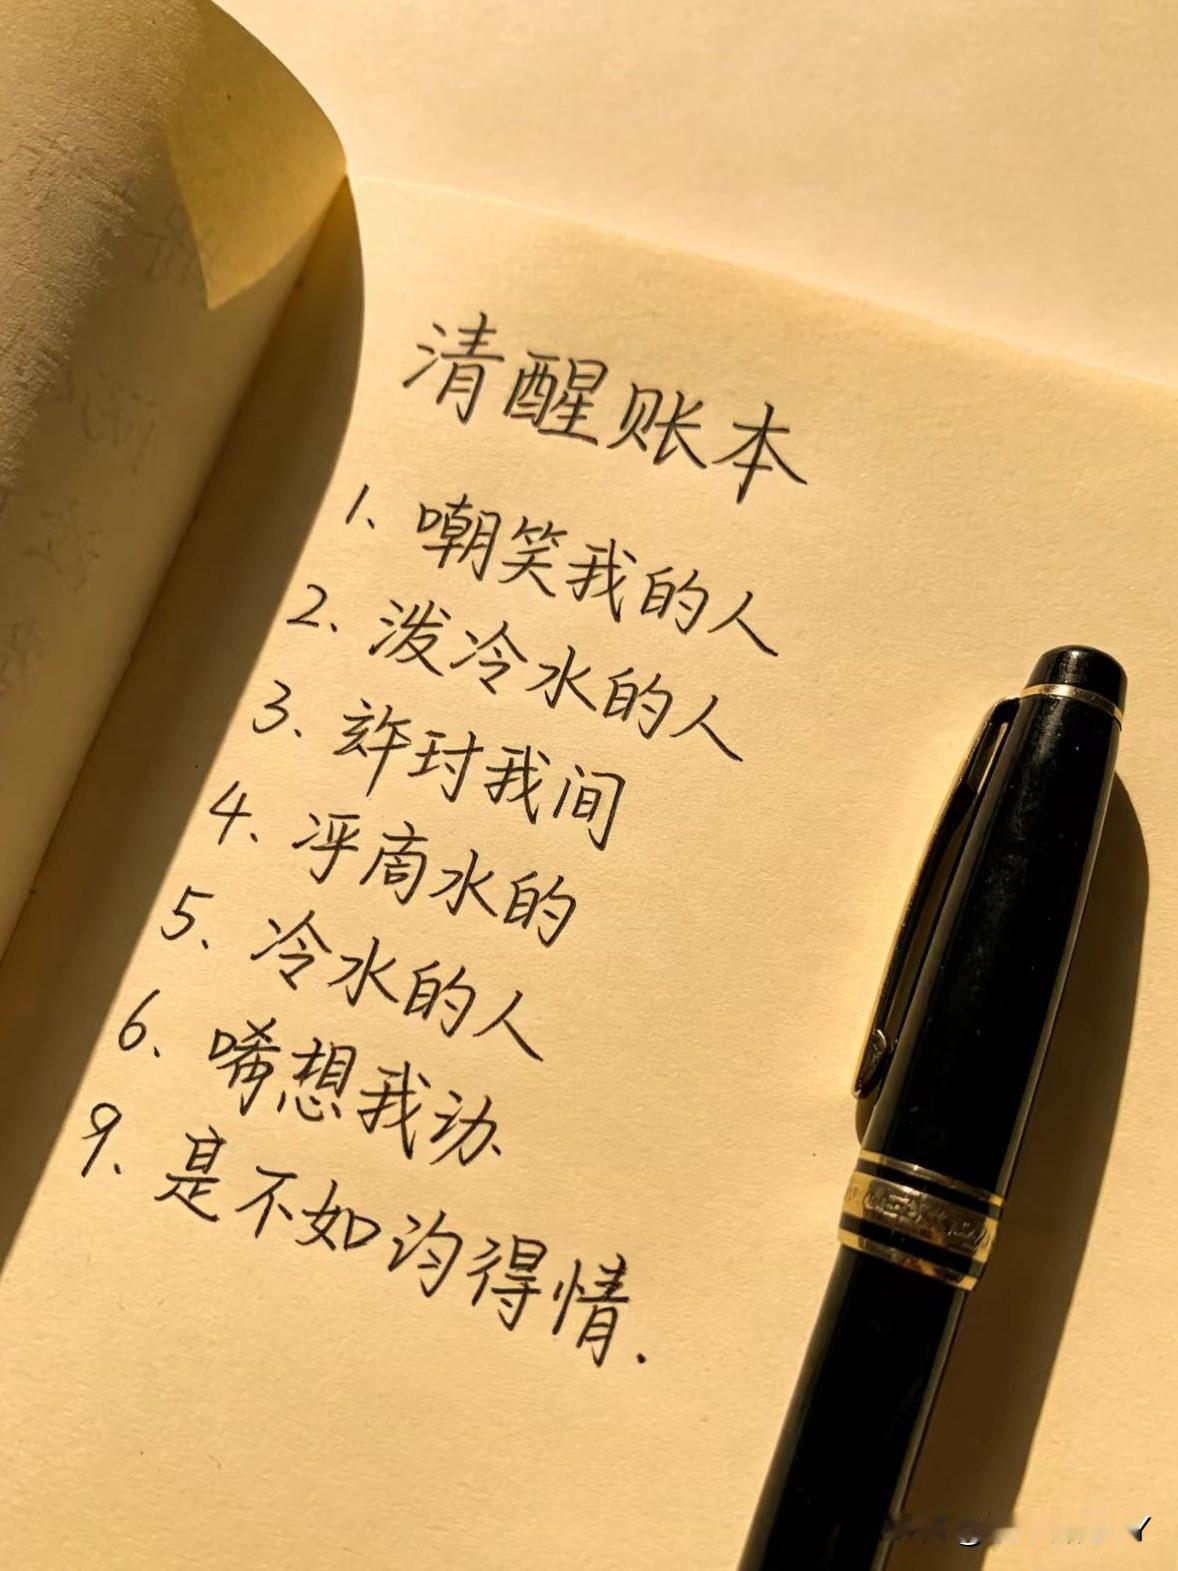 清醒账本
1、嘲笑我的人
2、泼冷水的人
3、我间
4、水的
5、冷水的人
6、唏想我
9、是不如得情.